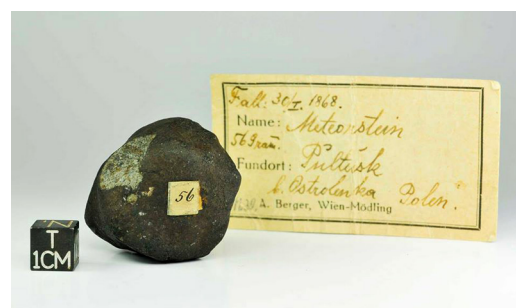 Fall: 30/I. 1868.
Name: Meteorstein
56 Gran.
Fundort: Pultusk
b. Ostrolenka Polen.
A. Berger, Wien-Mödling
56
N
T
1CM